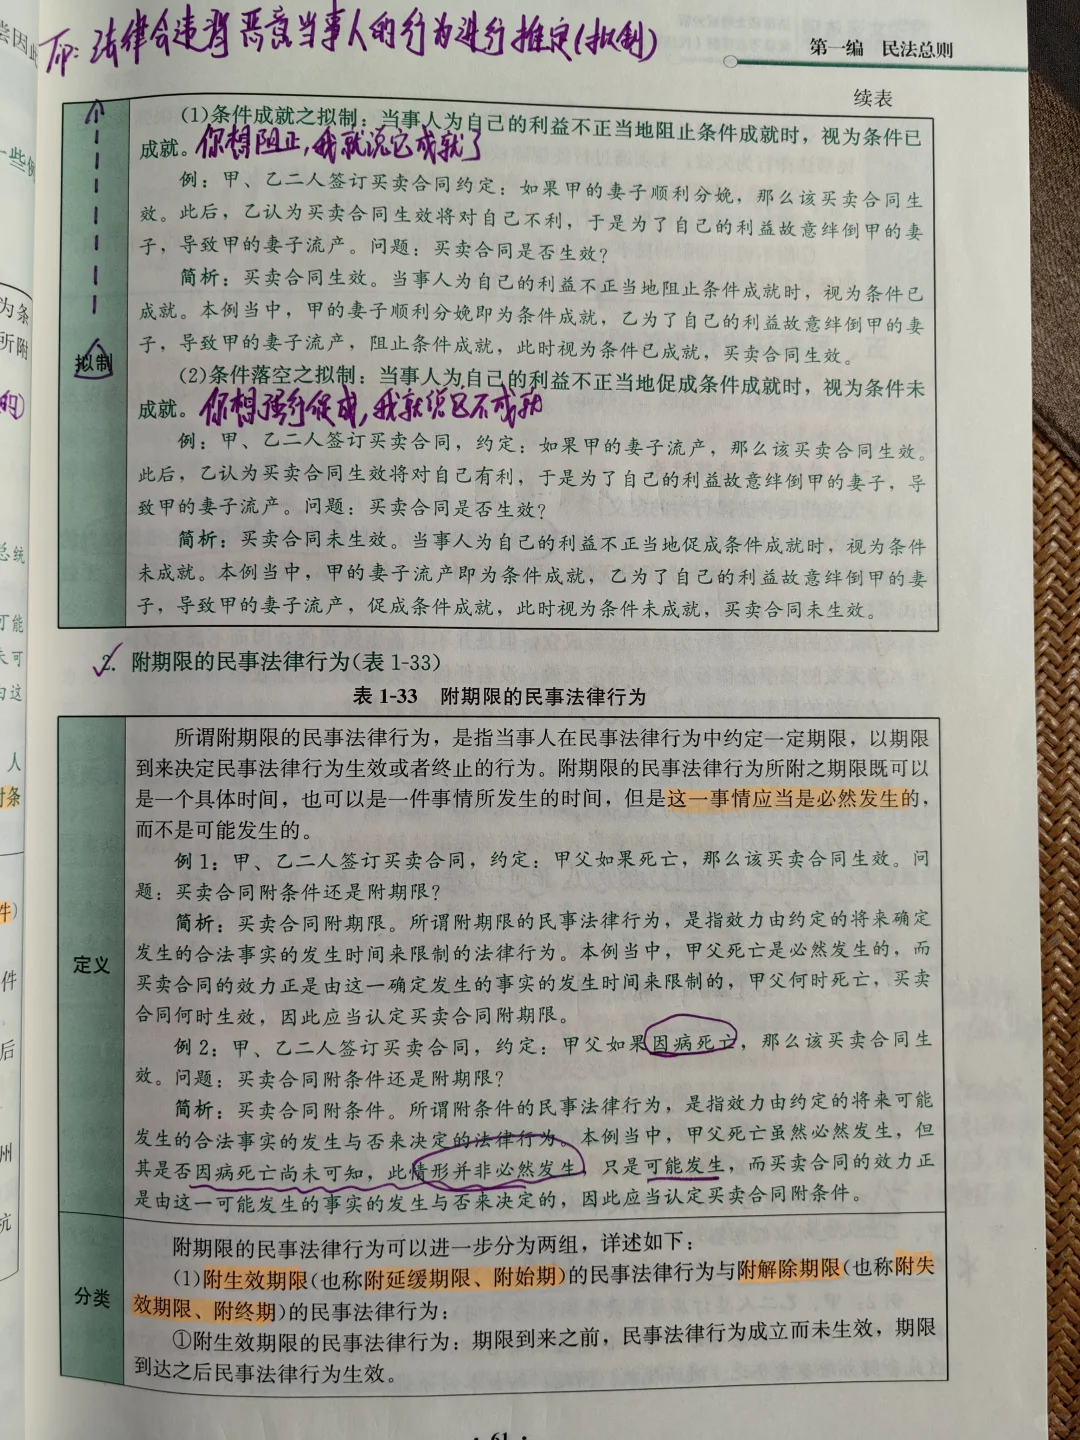 即：法律会违背恶意当事人的行为进行推定(拟制)
第一编　民法总则
续表
(1)条件成就之拟制：当事人为自己的利益不正当地阻止条件成就时，视为条件已
成就。你想阻止,我就说它成就了
例：甲、乙二人签订买卖合同约定：如果甲的妻子顺利分娩，那么该买卖合同生
效。此后，乙认为买卖合同生效将对自己不利，于是为了自己的利益故意绊倒甲的妻
子，导致甲的妻子流产。问题：买卖合同是否生效？
简析：买卖合同生效。当事人为自己的利益不正当地阻止条件成就时，视为条件已
成就。本例当中，甲的妻子顺利分娩即为条件成就，乙为了自己的利益故意绊倒甲的妻
子，导致甲的妻子流产，阻止条件成就，此时视为条件已成就，买卖合同生效。
拟制
(2)条件落空之拟制：当事人为自己的利益不正当地促成条件成就时，视为条件未
成就。你想强行促成,我就说它不成就
例：甲、乙二人签订买卖合同，约定：如果甲的妻子流产，那么该买卖合同生效。
此后，乙认为买卖合同生效将对自己有利，于是为了自己的利益故意绊倒甲的妻子，导
致甲的妻子流产。问题：买卖合同是否生效？
简析：买卖合同未生效。当事人为自己的利益不正当地促成条件成就时，视为条件
未成就。本例当中，甲的妻子流产即为条件成就，乙为了自己的利益故意绊倒甲的妻
子，导致甲的妻子流产，促成条件成就，此时视为条件未成就，买卖合同未生效。
2. 附期限的民事法律行为(表 1-33)
表 1-33　附期限的民事法律行为
所谓附期限的民事法律行为，是指当事人在民事法律行为中约定一定期限，以期限
到来决定民事法律行为生效或者终止的行为。附期限的民事法律行为所附之期限既可以
是一个具体时间，也可以是一件事情所发生的时间，但是这一事情应当是必然发生的，
而不是可能发生的。
例 1：甲、乙二人签订买卖合同，约定：甲父如果死亡，那么该买卖合同生效。问
题：买卖合同附条件还是附期限？
简析：买卖合同附期限。所谓附期限的民事法律行为，是指效力由约定的将来确定
发生的合法事实的发生时间来限制的法律行为。本例当中，甲父死亡是必然发生的，而
定义
买卖合同的效力正是由这一确定发生的事实的发生时间来限制的，甲父何时死亡，买卖
合同何时生效，因此应当认定买卖合同附期限。
例 2：甲、乙二人签订买卖合同，约定：甲父如果因病死亡，那么该买卖合同生
效。问题：买卖合同附条件还是附期限？
简析：买卖合同附条件。所谓附条件的民事法律行为，是指效力由约定的将来可能
发生的合法事实的发生与否来决定的法律行为。本例当中，甲父死亡虽然必然发生，但
其是否因病死亡尚未可知，此情形并非必然发生，只是可能发生，而买卖合同的效力正
是由这一可能发生的事实的发生与否来决定的，因此应当认定买卖合同附条件。
附期限的民事法律行为可以进一步分为两组，详述如下：
(1)附生效期限(也称附延缓期限、附始期)的民事法律行为与附解除期限(也称附失
分类
效期限、附终期)的民事法律行为：
①附生效期限的民事法律行为：期限到来之前，民事法律行为成立而未生效，期限
到达之后民事法律行为生效。
· 61 ·